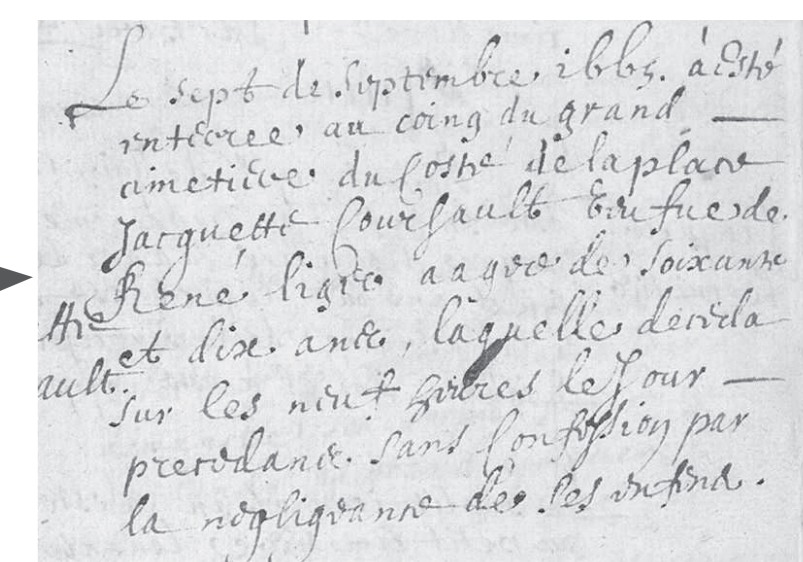 Le sept de septembre 1665. a esté
enterree au coing du grand
cimetiere du costé de la place
Jacquette Courhault veufue de
René ligée aagee de soixante
ette
et dix ans, laquelle deceda
ault.
sur les neuf heures le Jour
precedant sans Confession par
la negligeance de ses enfens.